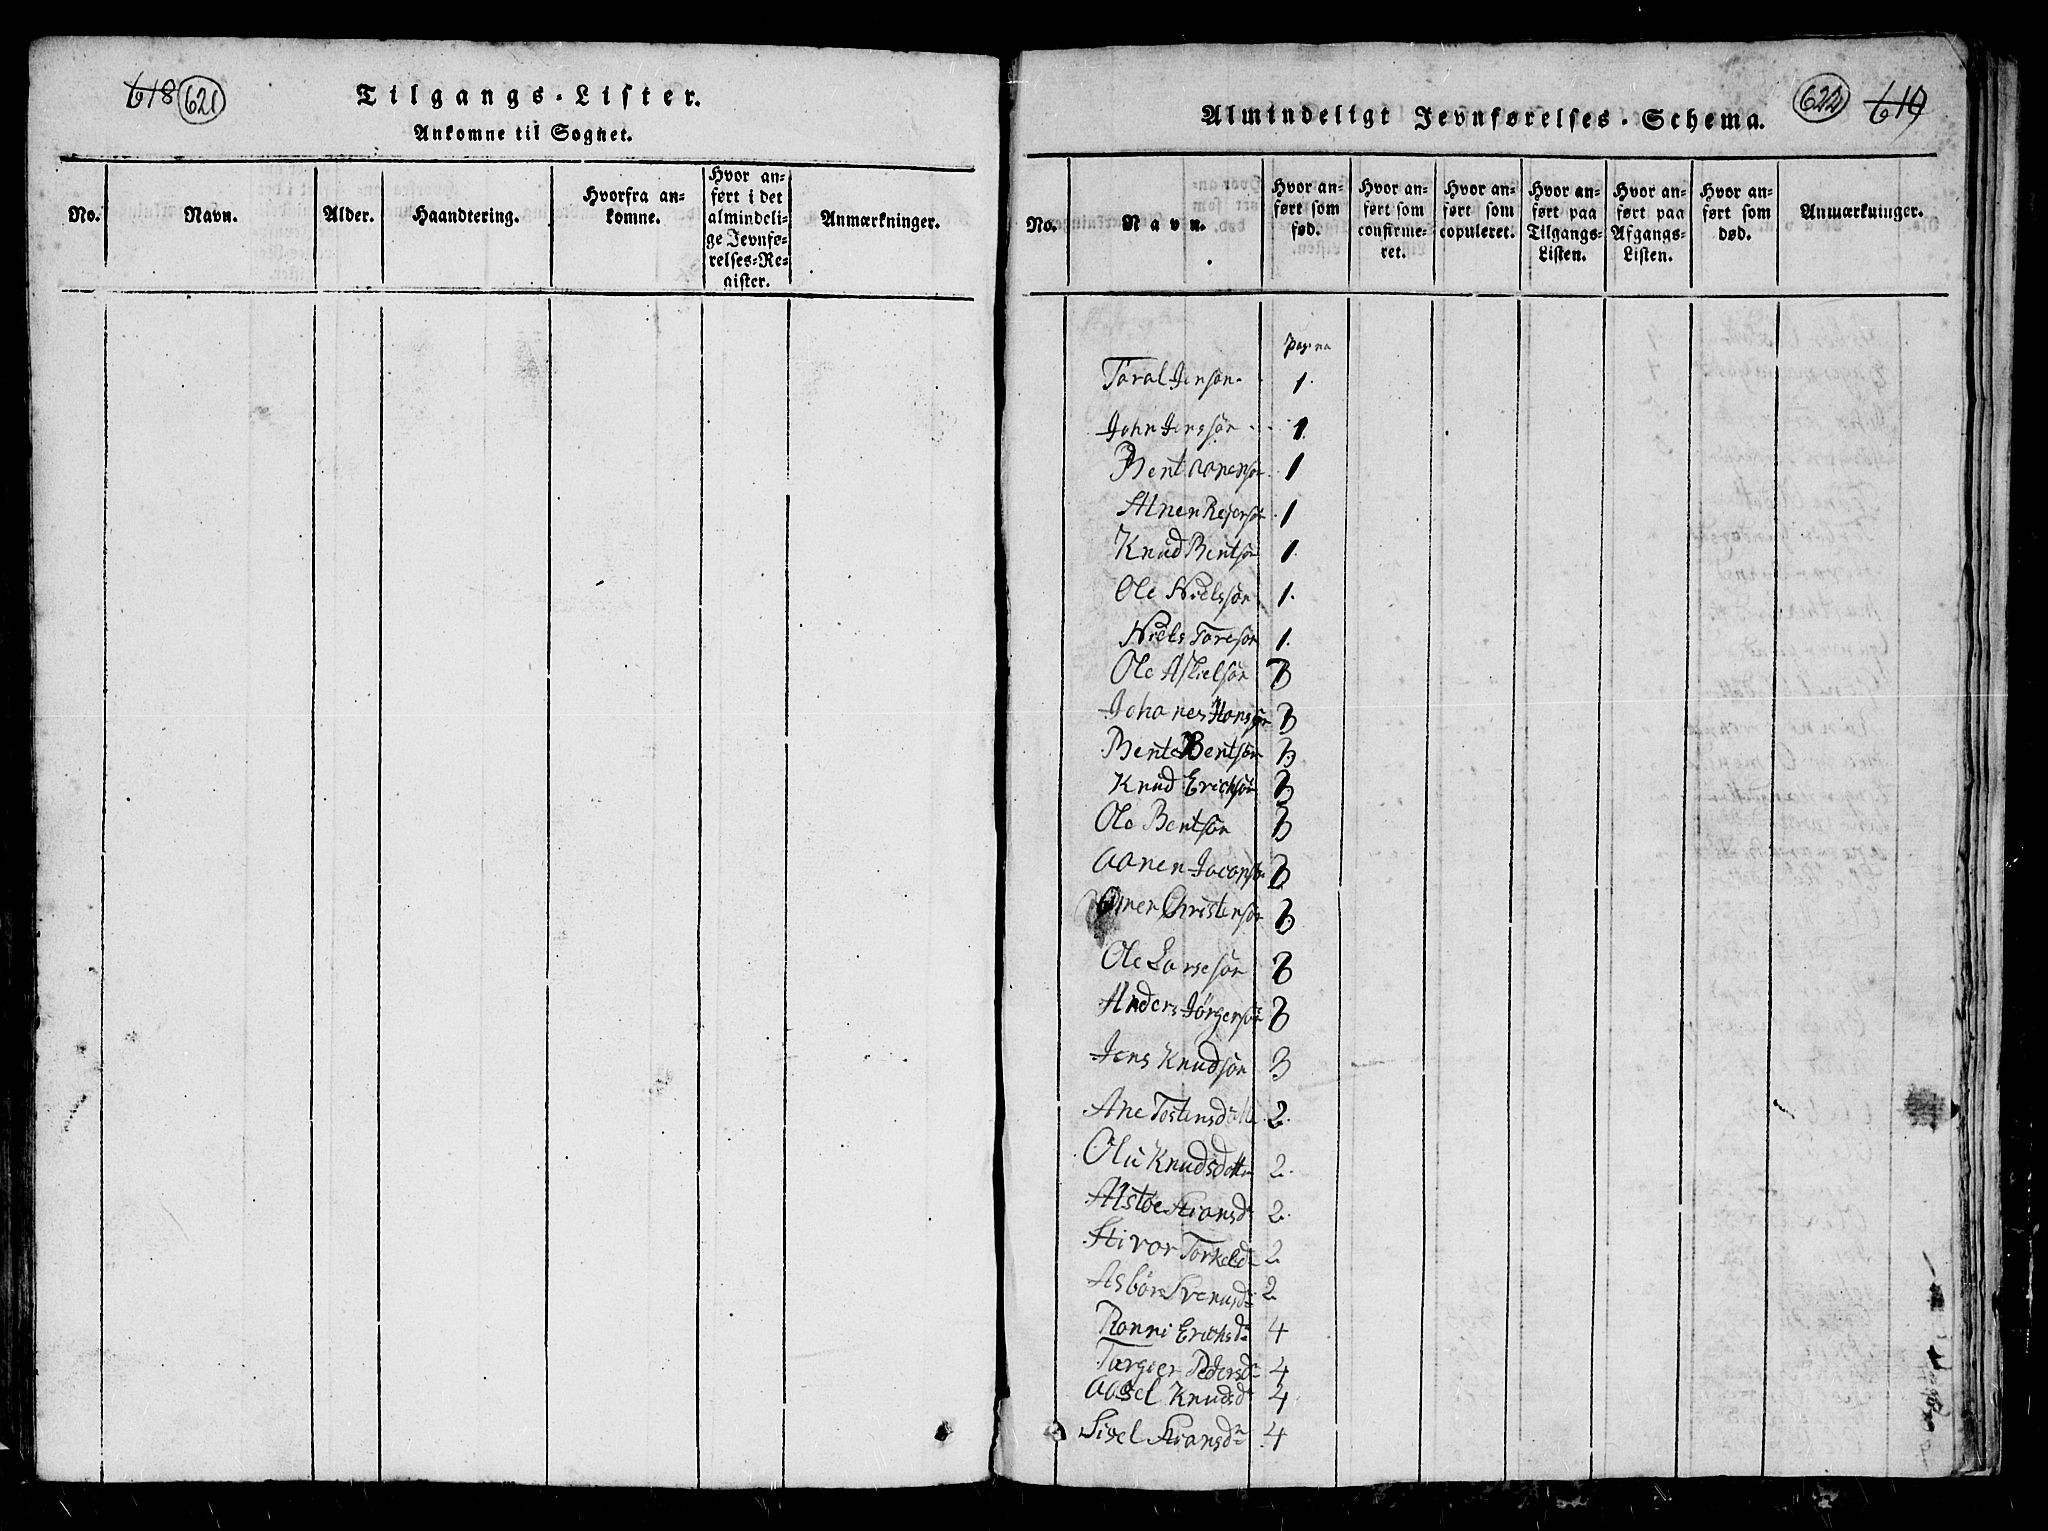 618 621
Tilgangs-Lister.
Ankomne til Sognet.
No.
Navn.
Alder.
Haandtering.
Hvorfra an-
komne.
Hvor an-
ført i det
almindeli-
ge Jevnfø-
relses-Re-
gister.
Anmærkninger.
622 619
Almindeligt Jevnførelses-Schema.
No.
Navn.
Hvor an-
ført som
fød.
Hvor an-
ført som
confirme-
ret.
Hvor an-
ført som
copuleret.
Hvor an-
ført paa
Tilgangs-
Listen.
Hvor an-
ført paa
Afgangs-
Listen.
Hvor an-
ført som
død.
Anmærkninger.
pagina
Taral Jensøn 1.
John Jenssøn 1.
Bent Aanensø 1
Anen Rejersø 1
Knud Bentsøn 1.
Ole Nielssøn 1.
Niels Toresøn 1.
Ole Askielsøn 3
Johanes Hanssøn 3
Bente Bentsøn 3
Knud Erichsøn 3
Ole Bentsøn 3
Aanen Jacobsø 3
Omen Christensøn 3
Ole Larsesøn 3
Anders Jørgensøn 3
Jens Knudsøn 3
Ane Tostensdatt 2.
Olu Knudsdatter 2.
Alstoe Stiansd 2.
Stivor Torkelsd 2
Asbor Svenusd 2
Ronni Erichsd 4
Targier Pedersd 4
Aasel Knudsd 4
Sisel Stiansd 4